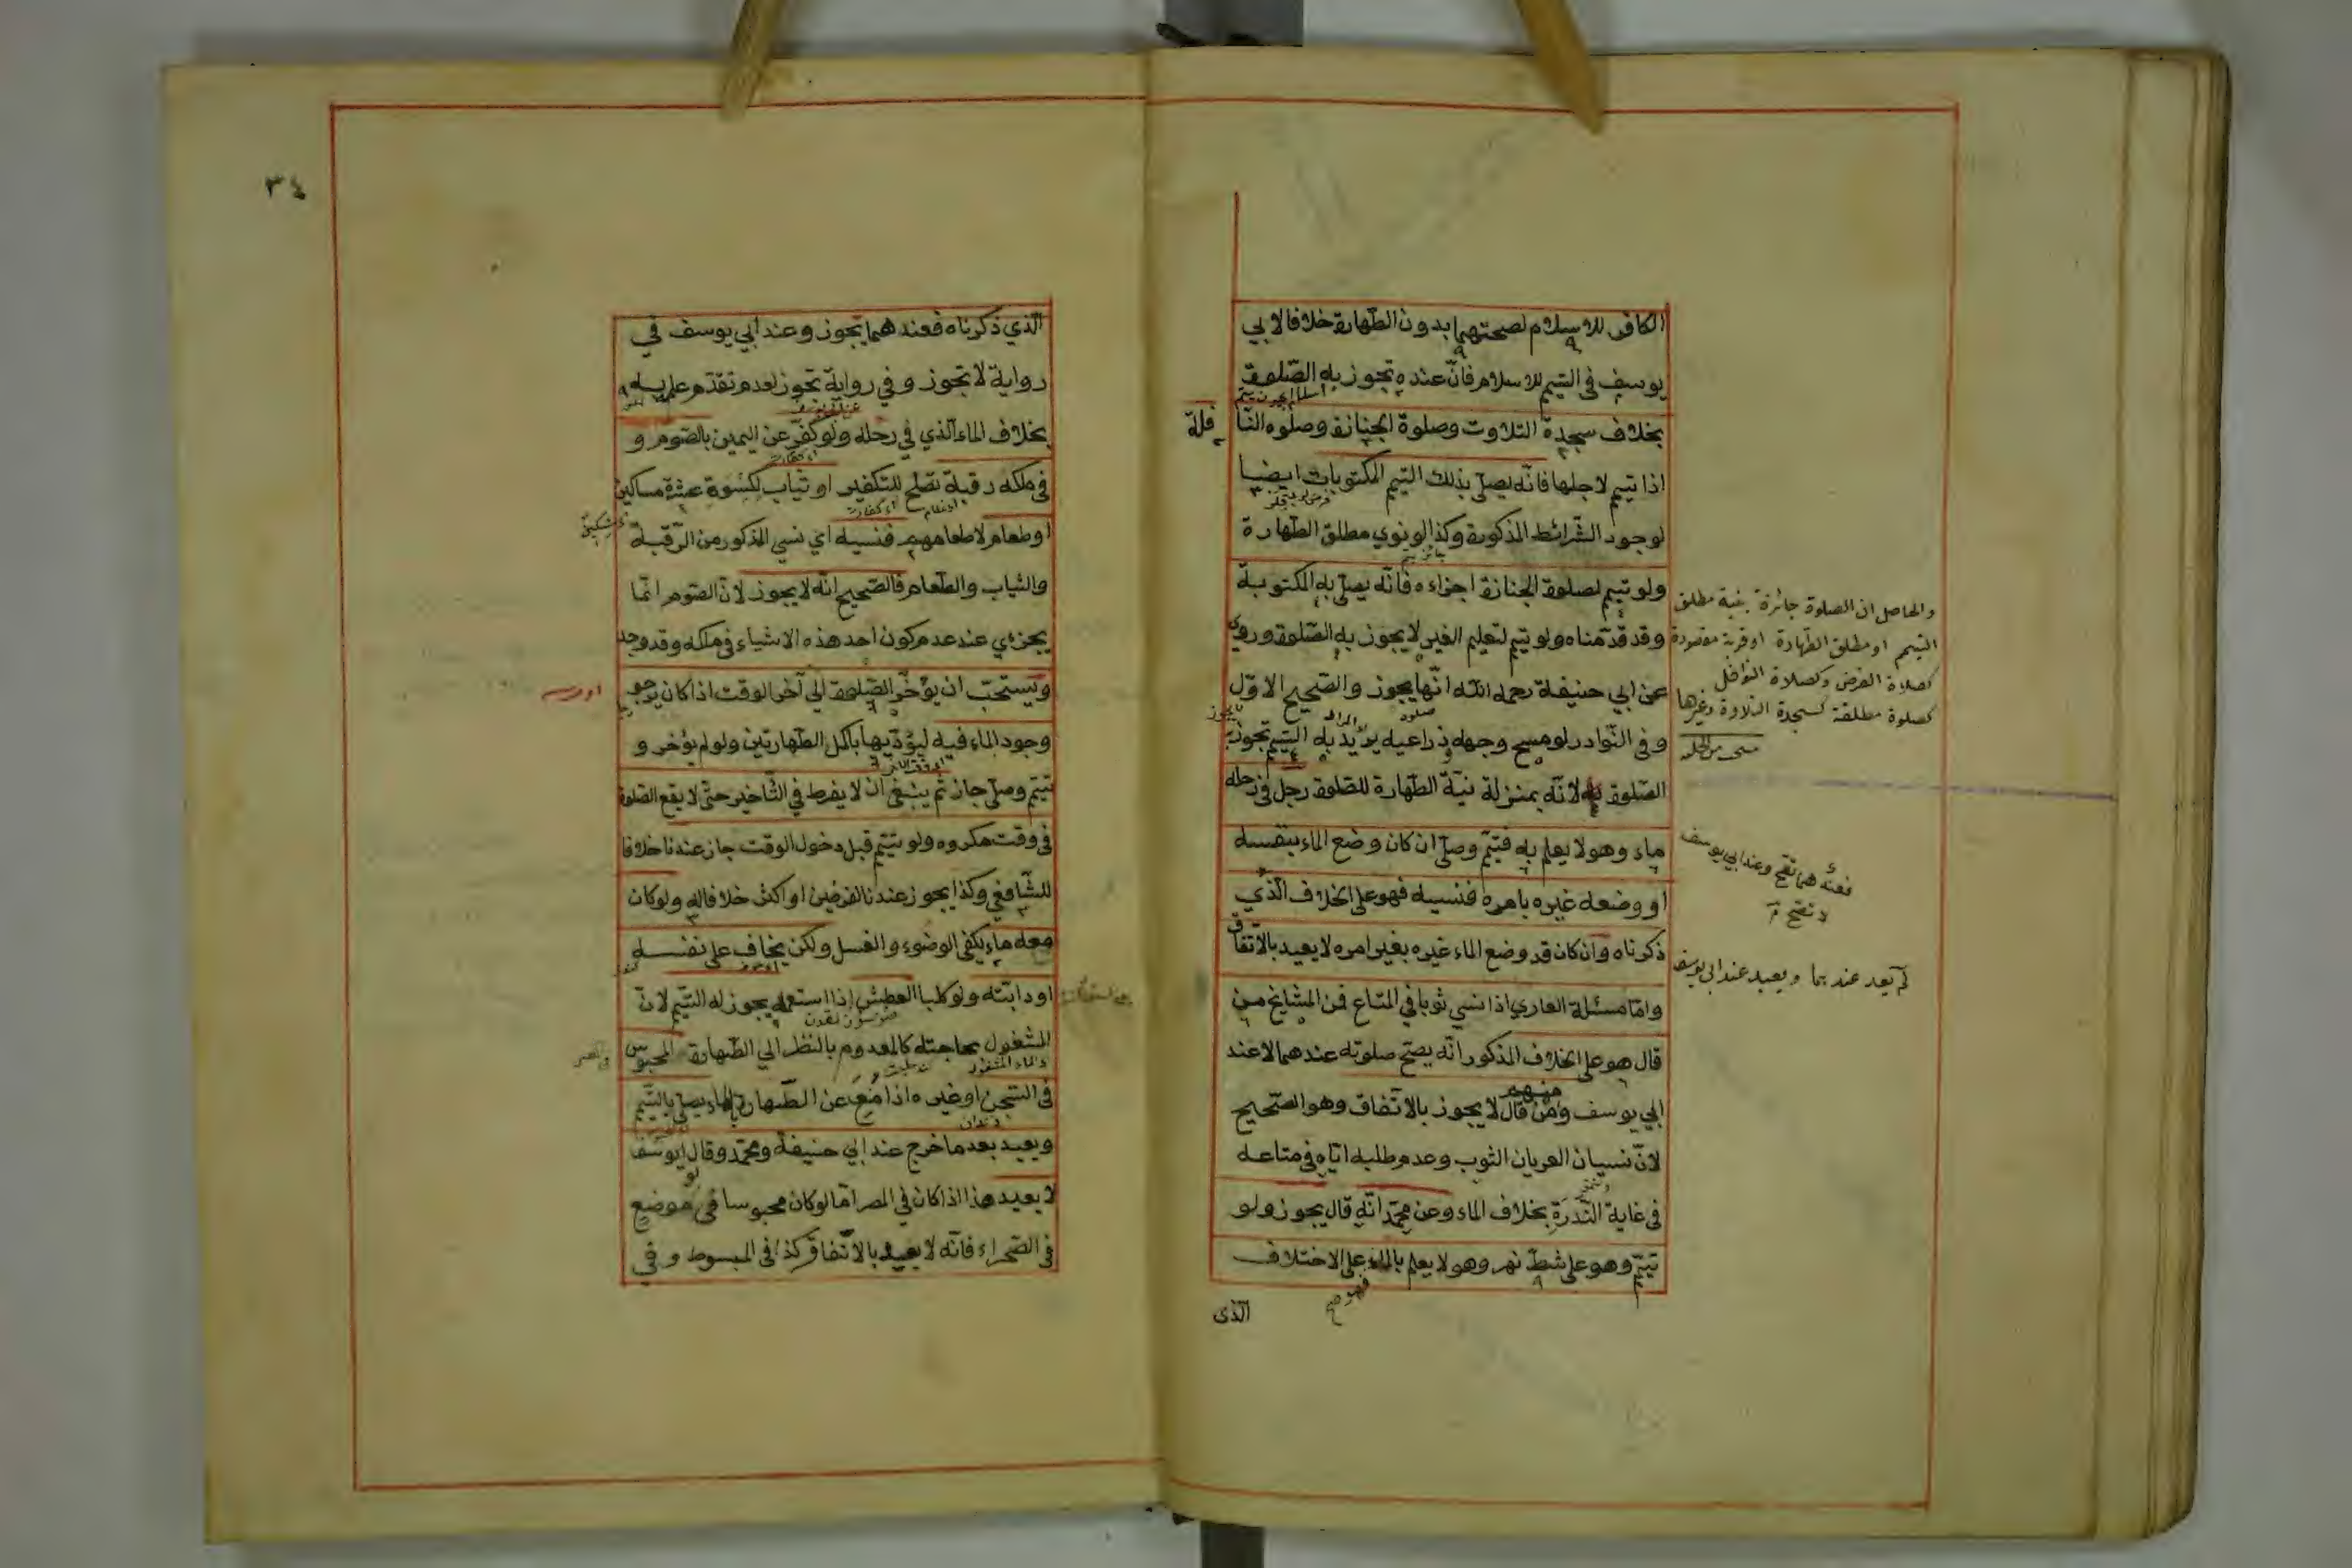 الكافر للاسلام لصحتهما بدون الطهارة خلافا لابي
يوسف في التيمم للاسلام فانّ عنده تجوز به الصّلوة
بخلاف سجدة التلاوت وصلوة الجنازة وصلوه النّا
فلة
اذا تيمم لاجلها فانّه يصلّي بذلك التيمم المكتوبات ايضا
لوجود الشّرائط المذكورة وكذا لو نوي مطلق الطّهارة
ولو تيمم لصلوة الجنازة اجزاءه فانّه يصلّي به المكتوبة
وقد قدّمناه ولو تيمم لتعليم الغير لا يجوز به الصّلوة وروي
عن ابي حنيفة رحمه اللّه انّها يجوز والصّحيح الاوّل
وفي النّوادر لو مسح وجهه وذراعيه يريد به التيمم تجوز
الصّلوة به لانّه بمنزلة نيّة الطّهارة للصّلوة رجل في رحله
ماء وهو لا يعلم به فتيمّم وصلّي ان كان وضع الماء بنفسه
او وضعه غيره بامره فنسيه فهو علي الخلاف الّذي
ذكرناه وان كان قد وضع الماء غيره بغير امره لا يعيد بالاتّفاق
وامّا مسئلة العاري اذا نسي ثوبا في المتاع فمن المشايخ من
قال هو علي الخلاف المذكور انّه يصحّ صلوته عندهما لا عند
ابي يوسف ومنهم من قال لا يجوز بالاتّفاق وهو الصّحيح
لانّ نسيان العريان الثوب وعدم طلبه ايّاه في متاعه
في غاية النّدرة بخلاف الماء وعن محمّد انّه قال يجوز ولو
تيمّم وهو علي شطّ نهر وهو لا يعلم بالماء فهو علي الاختلاف
الّذى
والحاصل ان الصلوة جائزة بنية مطلق
التيمم او مطلق الطهارة او قربة مقصودة
كصلاة الفرض وكصلاة النوافل
كصلوة مطلقة كسجدة التلاوة وغيرها
فعندهما تصح وعند ابي يوسف
لا تصح
لم يعد عندهما ويعيد عند ابي يوسف
٣٤
الّذي ذكرناه فعندهما يجوز وعند ابي يوسف في
رواية لا تجوز وفي رواية تجوز لعدم تقدّم علمه به
بخلاف الماء الّذي في رحله ولو كفّر عن اليمين بالصّوم و
في ملكه رقبة تصلح للتكفير او ثياب لكسوة عشرة مساكين
او طعام لاطعامهم فنسيه اي نسي المذكور من الرّقبة
والثياب والطّعام فالصّحيح انّه لا يجوز لانّ الصّوم انّما
يجزءي عند عدم كون احد هذه الاشياء في ملكه وقد وجد
ويستحبّ ان يؤخّر الصّلوة الي آخر الوقت اذا كان يرجو
وجود الماء فيه ليؤدّيها باكمل الطّهارتين ولو لم يؤخر و
تيمّم وصلّي جاز ثم ينبغي ان لا يفرط في التّاخير حتّي لا يقع الصّلوة
في وقت مكروه ولو تيمّم قبل دخول الوقت جاز عندنا خلافا
للشّافعي وكذا يجوز عندنا لفرضين او اكثر خلافا له ولو كان
معه ماء يكفي الوضوء والغسل ولكن يخاف علي نفسه
او دابّته ولو كلبا العطش اذا استعمله يجوز له التّيمم لانّ
المشغول بحاجته كالمعدوم بالنظر الي الطّهارة المحبوس
في السّجن او غيره اذا منع عن الطّهارة بالماء يصلّي بالتّيمّم
ويعيد بعد ما خرج عند ابي حنيفة ومحمّد وقال ابو يوسف
لا يعيد هذا اذا كان في المصر امّا لو كان محبوسا في موضع
في الصّحراء فانّه لا يعيد بالاتّفاق كذا في المبسوط وفي